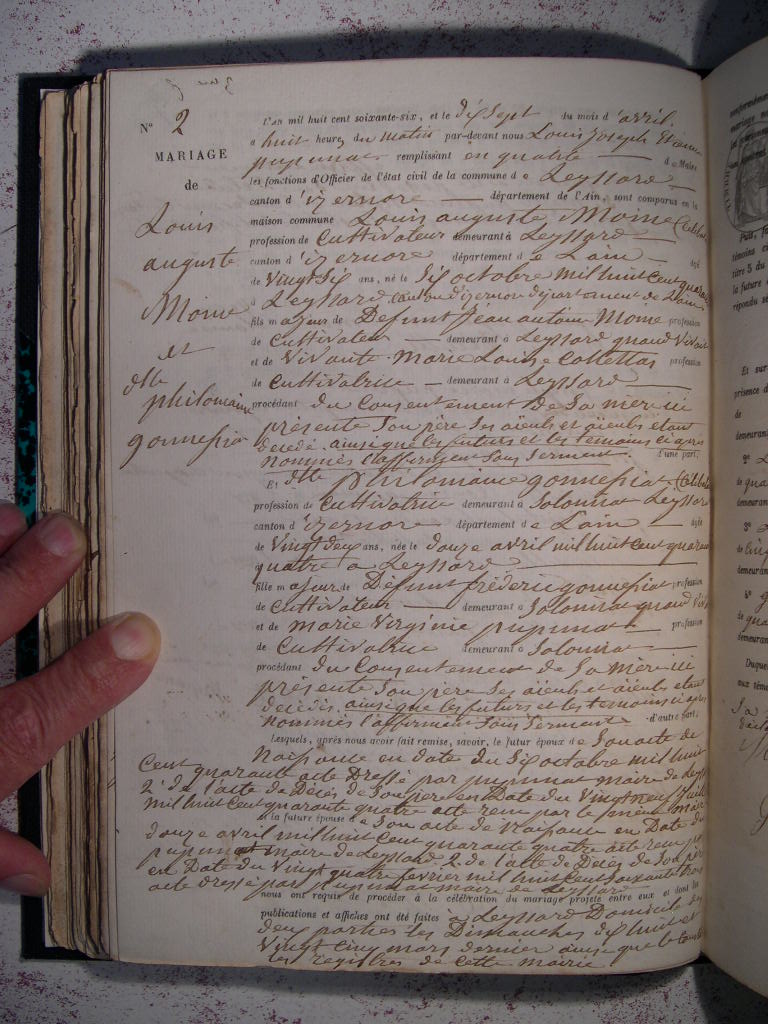 N° 2
MARIAGE
de
Louis
auguste
Mome
et
dlle
philomaine
gonnefia
L'an mil huit cent soixante-six, et le dix sept du mois d'avril
a huit heures du matin par-devant nous Louis Joseph
pupunat remplissant en qualité de Maire
les fonctions d'Officier de l'état civil de la commune de Leyssard
canton d'izernore département de l'Ain, sont comparus en la
maison commune Louis auguste Mome (Céliba
profession de Cultivateur demeurant à Leyssard
canton d'izernore département de Lain âgé
de Vingt Six ans, né le Six octobre mil huit cent quara
à Leyssard canton d'izernore département de Lain
fils majeur de Défunt Jean antoine Mome profession
de Cultivateur demeurant à Leyssard quand Vivait
et de Vivante Marie Louise Collettas profession
de Cultivatrice demeurant à Leyssard
procédant du Consentement de Sa mère ici
présente Son père Ses aïeuls et aïeules étant
décédé ainsi que les futurs et les témoins ci après
nommés l'affirment Sous Serment d'une part,
Et dlle philomaine gonnefiat (Céliba
profession de Cultivatrice demeurant à Solomiat Leyssard
canton d'izernore département de Lain âgée
de Vingt deux ans, née le douze avril mil huit cent quaran
quatre a Leyssard
fille majeur de Défunt frédéric gonnefiat profession
de Cultivateur demeurant à Solomiat quand Viv
et de marie Virginie pupunat profession
de Cultivatrice demeurant à Solomiat
procédant du Consentement de Sa mère ici
présente Son père Ses aïeuls et aïeules étant
décédés ainsi que les futurs et les témoins ci après
nommés l'affirment Sous Serment d'autre part,
Lesquels, après nous avoir fait remise, savoir, le futur époux de Son acte de
Naissance en date du Six octobre mil huit
Cent quarante acte Dressé par pupunat maire de Leyss
2° de l'acte de Décès de Son père en Date du Vingt neuf
mil huit Cent quarante quatre acte reçu par le même maire
et la future épouse de Son acte de Naissance en Date du
douze avril mil huit Cent quarante quatre acte reçu par
pupunat maire de Leyssard 2° de l'acte de Décès de Son père
en Date du Vingt quatre février mil huit Cent Soixante trois
acte dressé par pupunat maire de Leyssard
nous ont requis de procéder à la célébration du mariage projeté entre eux et dont les
publications et affiches ont été faites à Leyssard Domicile des
deux parties les Dimanches dix huit et
Vingt Cinq mars dernier ainsi que le
les registres de cette mairie